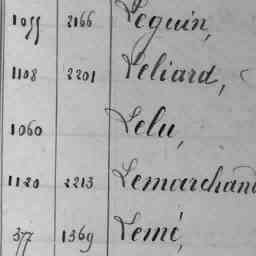 1055 2166 Leguin,
1108 2201 Leliard,
1060 Lelu,
1120 2213 Lemarchand
377 1369 Lemé,